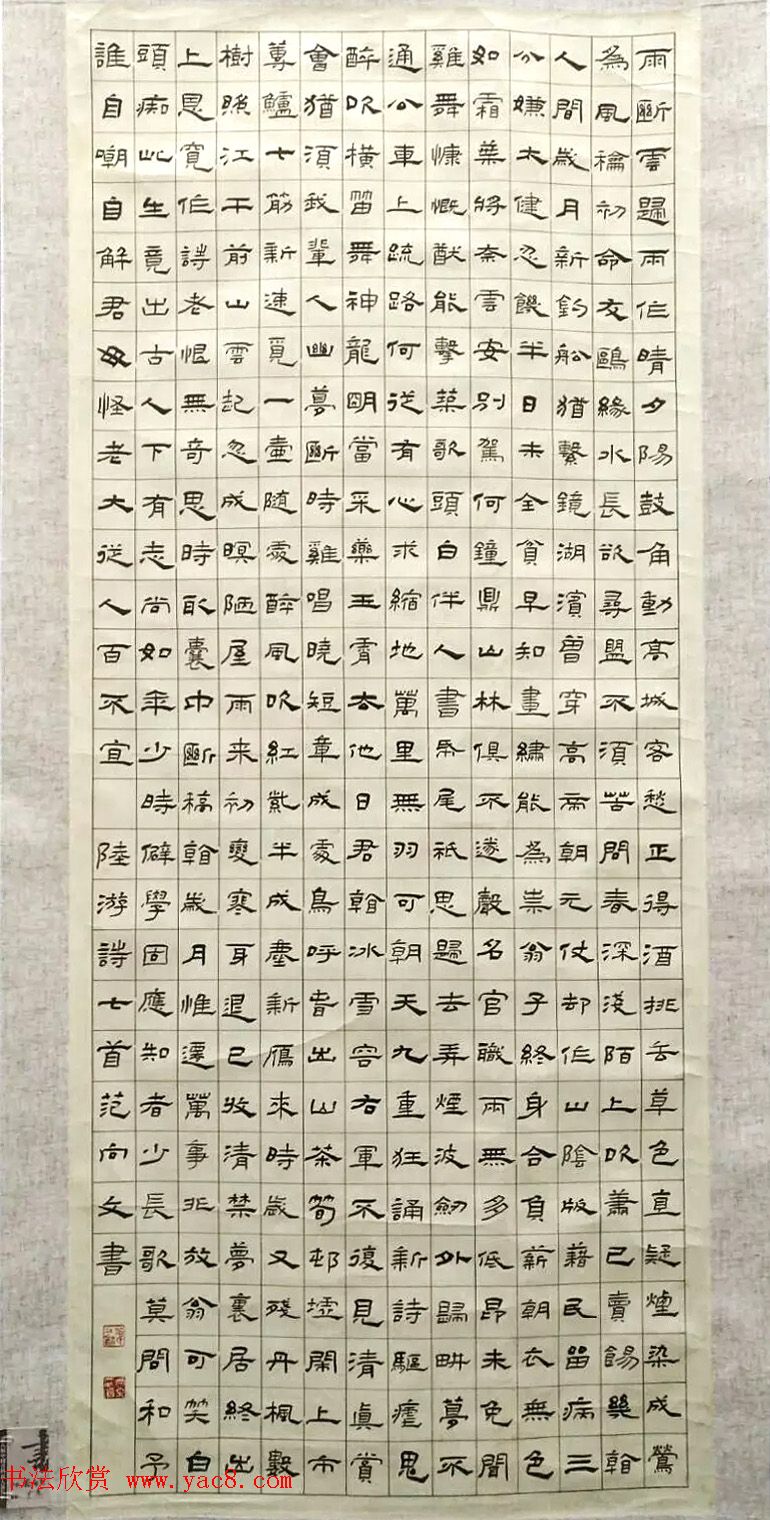 雨斷雲歸雨作晴夕陽鼓角動高城客愁正得酒排去草色直疑煙染成鶯
為風龢初命友鷗緣水長欲尋盟不須苦問春深淺陌上吹簫已賣餳幾看
人間歲月新釣船猶繫鏡湖濱曾穿高帝朝元仗却作山陰版藉民留病三
分嫌太健忍饑半日未全貧早知畫繡能為祟翁子終身合負薪朝衣無色
如霜葉將奈雲安別駕何鐘鼎山林俱不遂聲名官職兩無多低昂未免聞
雞舞慷慨猷能擊築歌頭白伴人書紙尾祇思歸去弄煙波劒外歸畊夢不
通公車上疏路何從有心求縮地萬里無羽可朝天九重狂誦新詩驅瘧鬼
醉吹橫笛舞神龍明當采藥玉霄去他日君看冰雪容右軍不復見清真賞
會猶須我輩人幽夢斷時雞唱曉短章成處鳥呼旾出山茶筍邨墟鬧上市
蓴鱸七筯新速覓一壺隨處醉風吹紅紫半成塵新雁來時歲又殘丹楓數
樹照江干前山雲起忽成暝陋屋雨来初變寒耳退已收清禁夢裏居終出
上恩寬作詩老恨無奇思時取囊中斷稿看歲月惟遷萬事非放翁可笑白
頭痴此生竟出古人下有志尚如年少時僻學固應知者少長歌莫問和予
誰自嘲自解君毋怪老大從人百不宜 陸游詩七首范向文書
书法欣赏 www.yac8.com